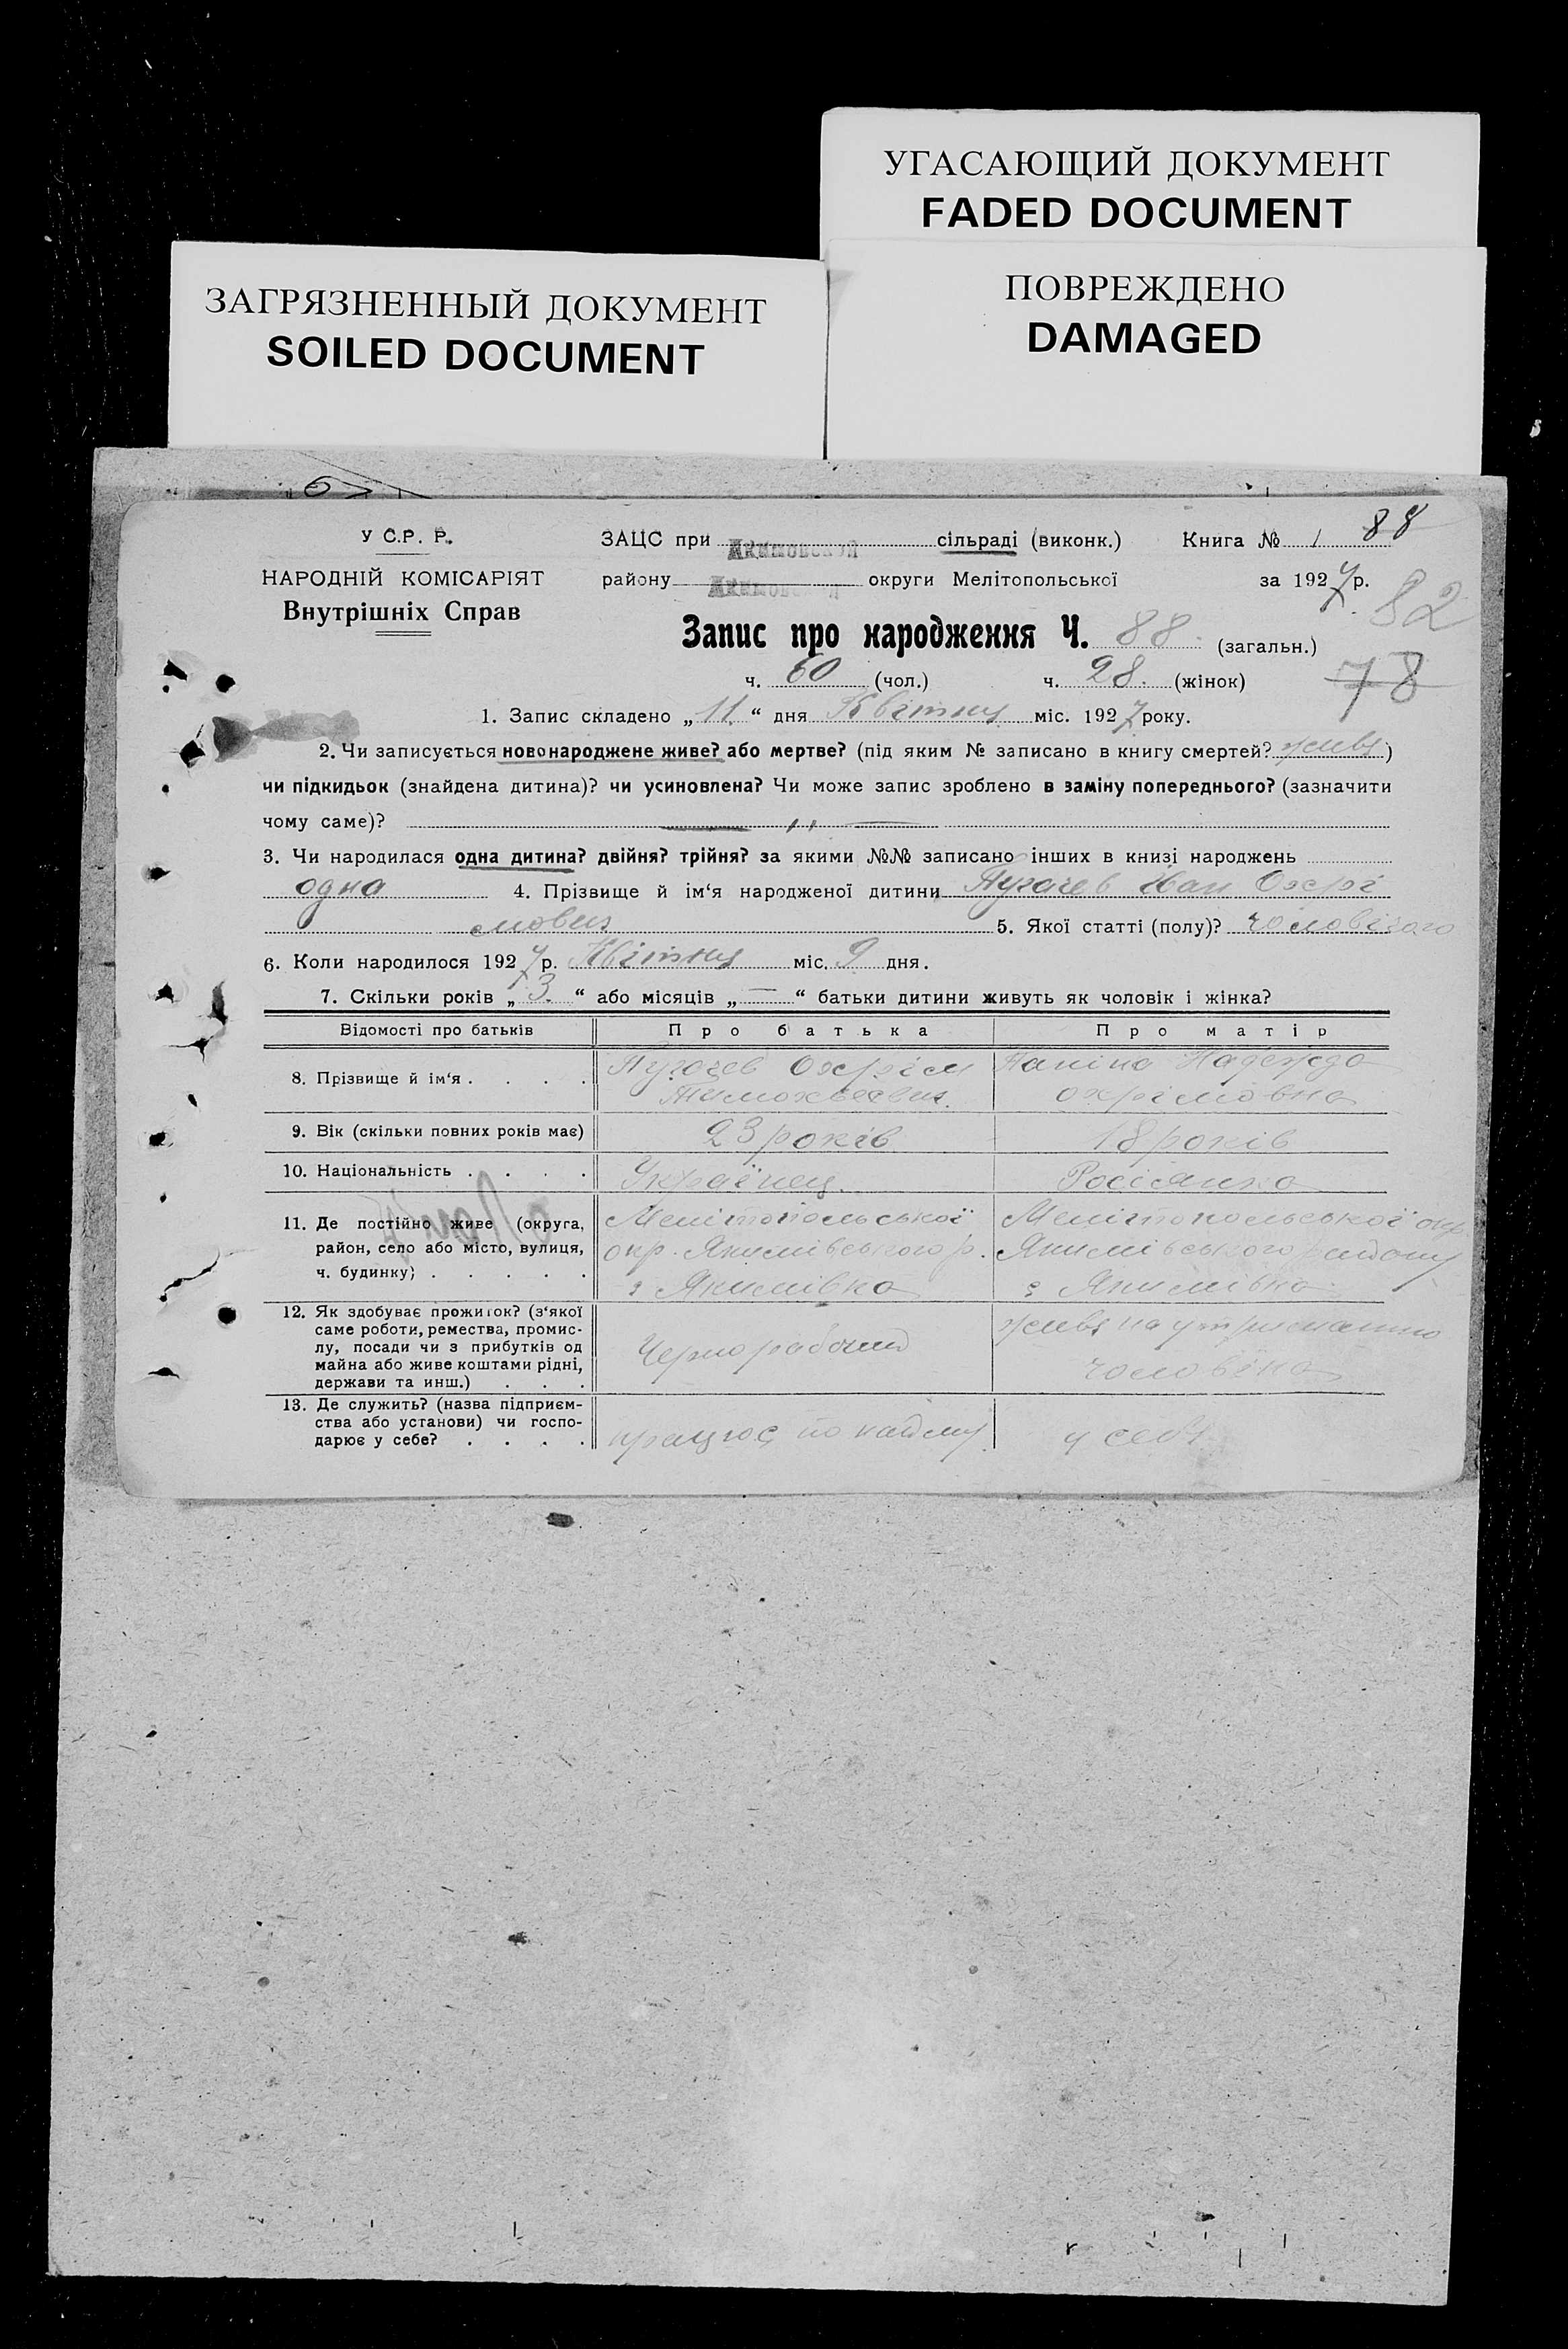 УГАСАЮЩИЙ ДОКУМЕНТ
FADED DOCUMENT
ЗАГРЯЗНЕННЫЙ ДОКУМЕНТ
SOILED DOCUMENT
ПОВРЕЖДЕНО
DAMAGED
У С.Р. Р.
НАРОДНІЙ КОМІСАРІЯТ
Внутрішніх Справ
ЗАЦС при Акимовской сільраді (виконк.) Книга № 1 88
району Акимовской округи Мелітопольської за 1927 р.
82
Запис про народження Ч. 88 (загальн.)
ч. 60 (чол.) ч. 28. (жінок)
78
1. Запис складено „ 11 “ дня Квітня міс. 1927 року.
2. Чи записується новонароджене живе? або мертве? (під яким № записано в книгу смертей? живе)
чи підкидьок (знайдена дитина)? чи усиновлена? Чи може запис зроблено в заміну попереднього? (зазначити
чому саме)?
3. Чи народилася одна дитина? двійня? трійня? за якими №№ записано інших в книзі народжень
одна 4. Прізвище й ім‘я народженої дитини Пугачев Іван Охрі
мович 5. Якої статті (полу)? чоловічого
6. Коли народилося 1927 р. Квітня міс. 9 дня.
7. Скільки років „ 3. “ або місяців „ — “ батьки дитини живуть як чоловік і жінка?
Відомості про батьків Про батька Про матір
8. Прізвище й ім‘я . . . . Пугачев Охрім Паніна Надежда
Тимохвеевич. охрімовна
9. Вік (скільки повних років має) 23 років 18 років
10. Національність . . . . Українец. Россіянка
11. Де постійно живе (округа, Мелітопольської Мелітопольської окр.
район, село або місто, вулиця, окр. Якимівського р. Якимівського району
ч. будинку) . . . . . с Якимівка с Якимівка
12. Як здобуває прожиток? (з‘якої
саме роботи, ремества, промис-
лу, посади чи з прибутків од
майна або живе коштами рідні,
держави та инш.) . . .
Чернорабочий
живе на утриманню
чоловіка
13. Де служить? (назва підприєм-
ства або установи) чи госпо-
дарює у себе? . . . .
працює по найму
у себе